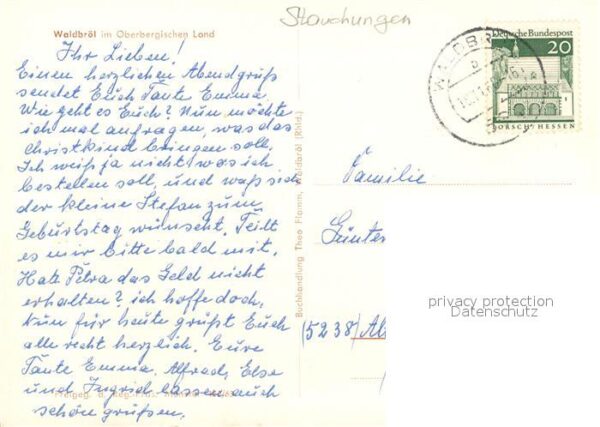 Stauchungen
Waldbröl im Oberbergischen Land
Ihr Lieben!
Einen herzlichen Abendgruß
sendet Euch Tante Emma.
Wie geht es Euch? Nun möchte
ich mal anfragen, was das
Christkind bringen soll.
Ich weiß ja nicht was ich
bestellen soll, und waß sich
der kleine Stefan zum
Geburtstag wünscht. Teilt
es mir bitte bald mit.
Hate Petra das Geld nicht
erhalten? ich hoffe doch.
Nun für heute grüßt Euch
alle recht herzlich. Eure
Tante Emma, Alfred, Else
und Ingrid lassen auch
schön grüßen.
Freigeg. d. Reg.
Buchhandlung Theo Flamm, Waldbröl (Rhld.)
Deutsche Bundespost
20
LORSCH/HESSEN
WALDBR
Familie
Günter
(5238)
privacy protection
Datenschutz